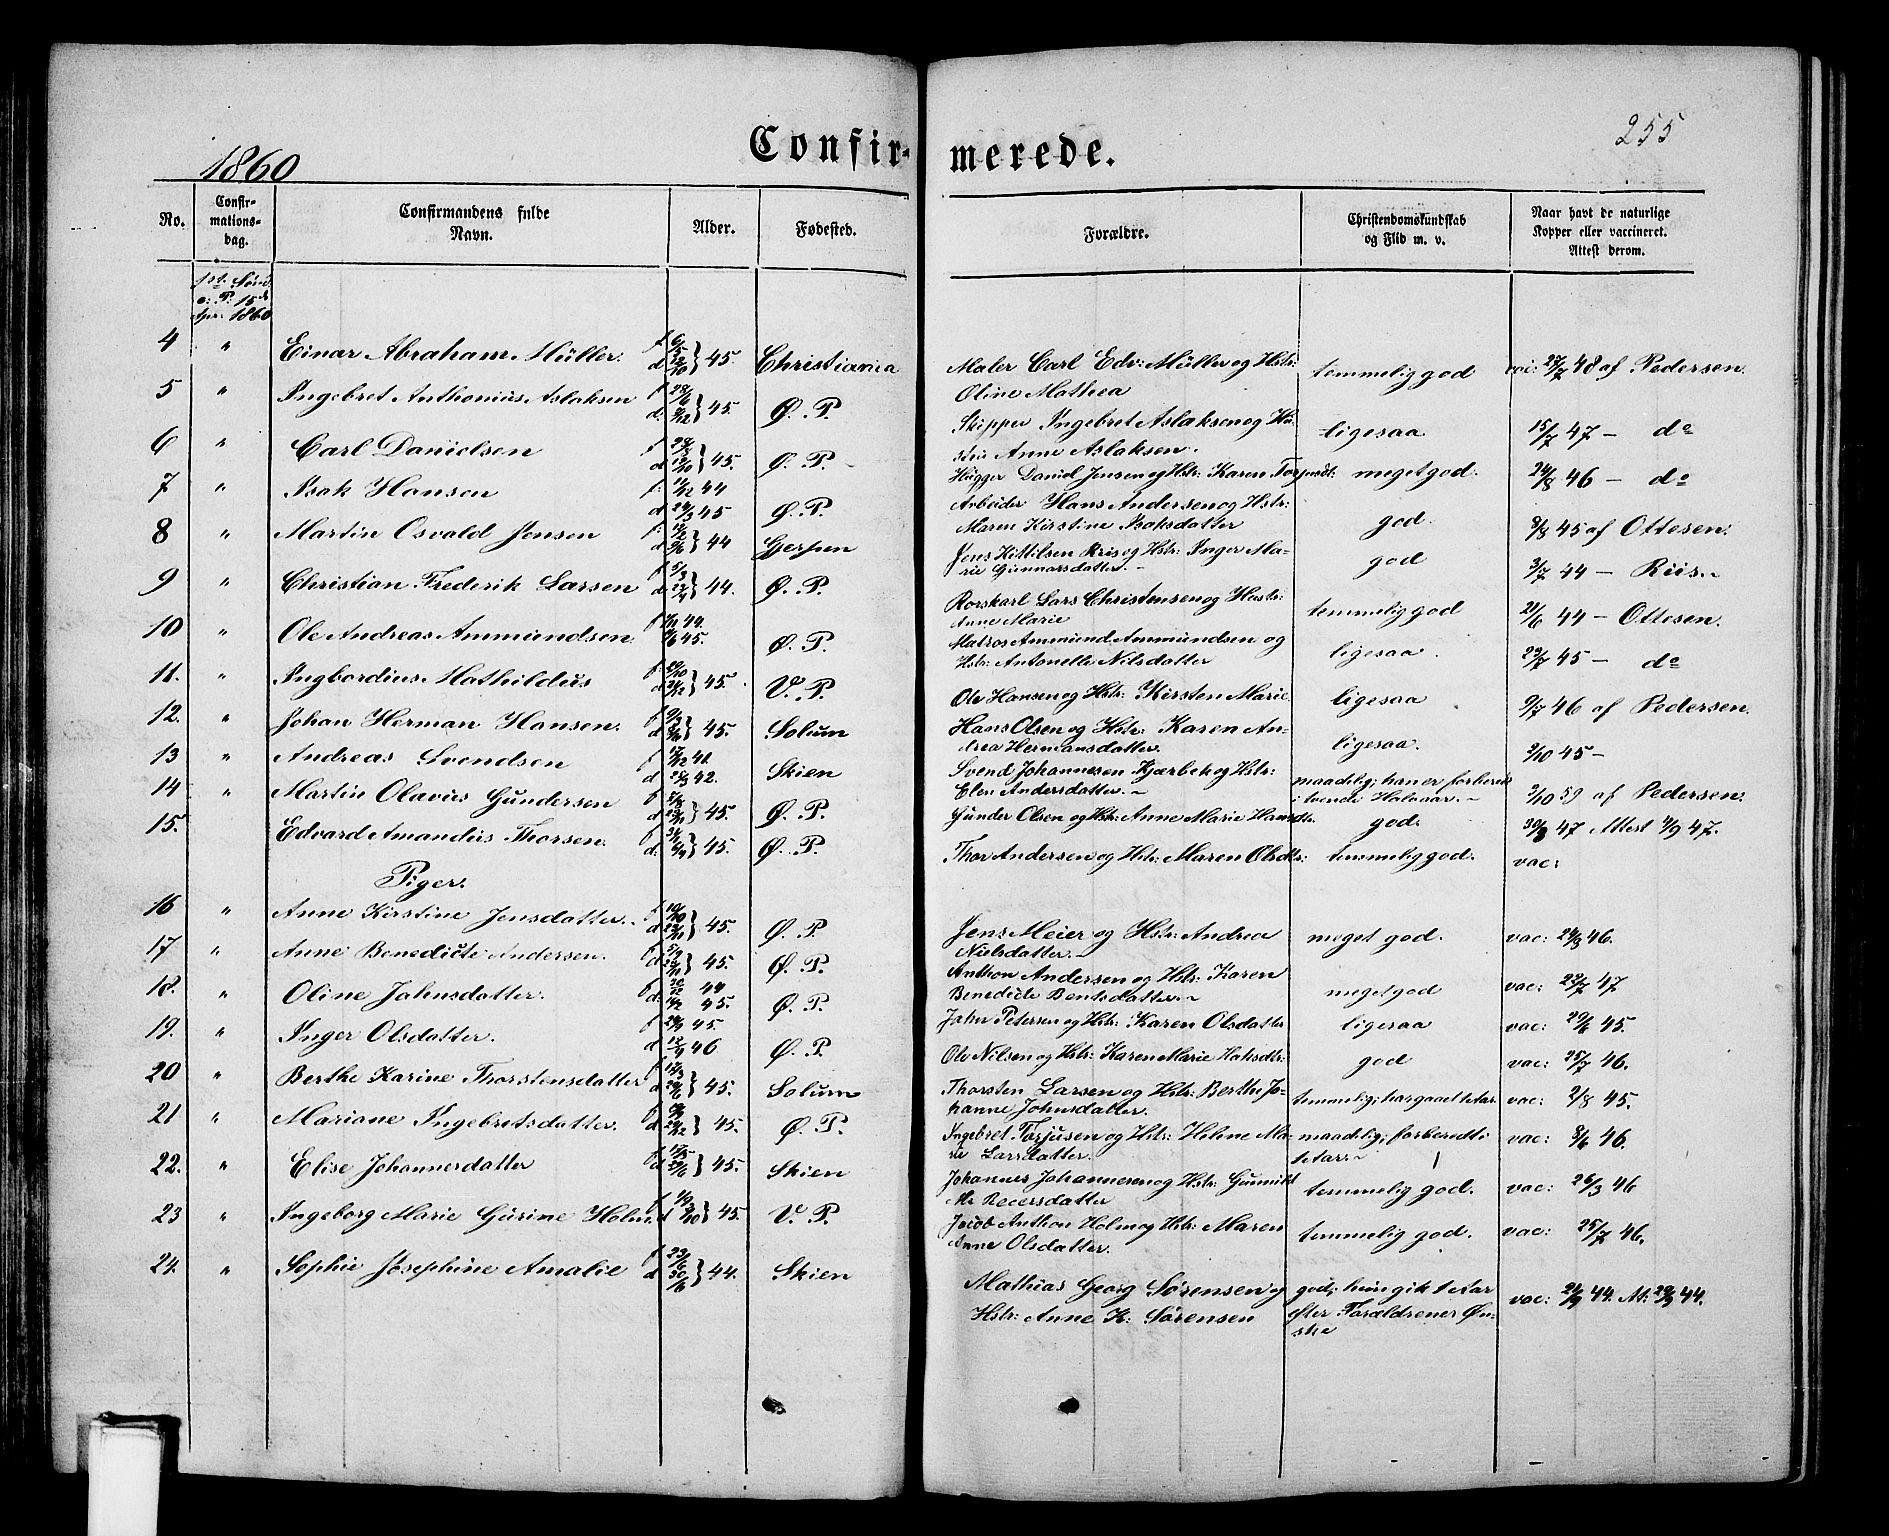 255
1860
Confirmerede.
No.
Confirmationsdag.
Confirmandens fulde Navn.
Alder.
Fødested.
Forældre.
Christendomskundskab og Flid m. v.
Naar havt de naturlige Kopper eller vaccineret. Attest derom.
1st. Sønd.
e: P: 15de
Apr: 1860
4 " Einar Abraham Müller. 45. Christiania Maler Carl Edv: Müller og Hstr: Oline Mathea temmelig god vac: 27/7 48 af Pedersen.
5 " Ingebret Anthonius Aslaksen 45. Ø. P. Skipper Ingebret Aslaksen og Hustru Anne Aslaksen. ligesaa 15/7 47 — do
6 " Carl Danielsen 45. Ø. P. Hugger Daniel Jensen og Hstr: Karen meget god. 24/8 46 — do
7 " Isak Hansen f: 11/12 44 d 24/3 45 Ø. P. Arbeider Hans Andersen og Hstr: Maren Kirstine Isaksdatter god. 8/8 45 af Ottesen.
8 " Martin Osvald Jensen 44 Gjerpen Jens Kittilsen og Hstr: Inger Marie Gunnarsdatter. god 3/7 44 — Riis.
9 " Christian Frederik Larsen 44. Ø. P. Rorskarl Lars Christensen og Hustr: Anne Marie temmelig god 21/6 44 — Ottesen.
10 " Ole Andreas Ammundsen. 44. 45. Ø. P. Matros Ammund Ammundsen og Hstr: Antonelle Nilsdatter ligesaa. 45 — do
11. " Ingbordius Mathildus 45. V. P. Ole Hansen og Hstr: Kirsten Marie ligesaa 9/7 46 af Pedersen.
12. " Johan Herman Hansen. 45. Solum Hans Olsen og Hstr: Karen Andrea Hermansdatter. ligesaa. 2/10 45 —
13 " Andreas Svendsen 41. 42. Skien Svend Johannesen Kjærbek og Hstr: Elen Andersdatter. maadelig; han er forberedt i tvende Halvaar. 3/10 59 af Pedersen.
14 " Martin Olavus Gundersen 45. Ø. P. Gunder Olsen og Hstr: Anne Marie Hansdtr. god. 47 Attest 4/9 47.
15. Edvard Amandus Thorsen. 45. Ø. P. Thor Andersen og Hstr: Maren Olsdtr: temmelig god. vac:
Piger.
16 " Anne Kirstine Jensdatter. 45. Ø. P. Jens Meier og Hstr: Andrea Nielsdatter. meget god. vac: 24/8 46.
17 " Anne Benedicte Andersen. 45. Ø. P. Anthon Andersen og Hstr: Karen Benedicte Bentsdatter. meget god vac: 22/7 47
18. " Oline Jahnsdatter. 44 45. Ø. P. Jahn Petersen og Hstr: Karen Olsdatter ligesaa vac: 20/6 45.
19. " Inger Olsdatter. 45 46 Ø. P. Ole Nilsen og Hstr: Karen Marie god vac: 25/7 46.
20 " Berthe Karine Thorstensdatter 45. Solum Thorsten Larsen og Hstr: Berthe Johanne Johnsdatter. temmelig; har gaaet 1 Aar. vac: 2/8 45.
21 " Mariane Ingebretsdatter. 45. Ø. P. Ingebret Torjusen og Hstr: Helene Marie Larsdatter. maadelig; forberedt i 1 Aar. vac: 8/6 46.
22. " Elise Johannesdatter 45. Skien Johannes Johannesen og Hstr: temmelig god. vac: 26/3 46
23 " Ingeborg Marie Gurine Holm. 45. V. P. Jacob Anthon Holm og Hstr: Maren Anne Olsdatter. temmelig god. vac: 25/7 46.
24. " Sophie Josephine Amalie f. 23/6 d 30/6 44. Skien Mathias Georg Sørensen og Hstr: Anne K: Sørensen god; hun gik 1 Aar efter Forældrenes Ønske vac: 21/9 44. At: 29/9 44.